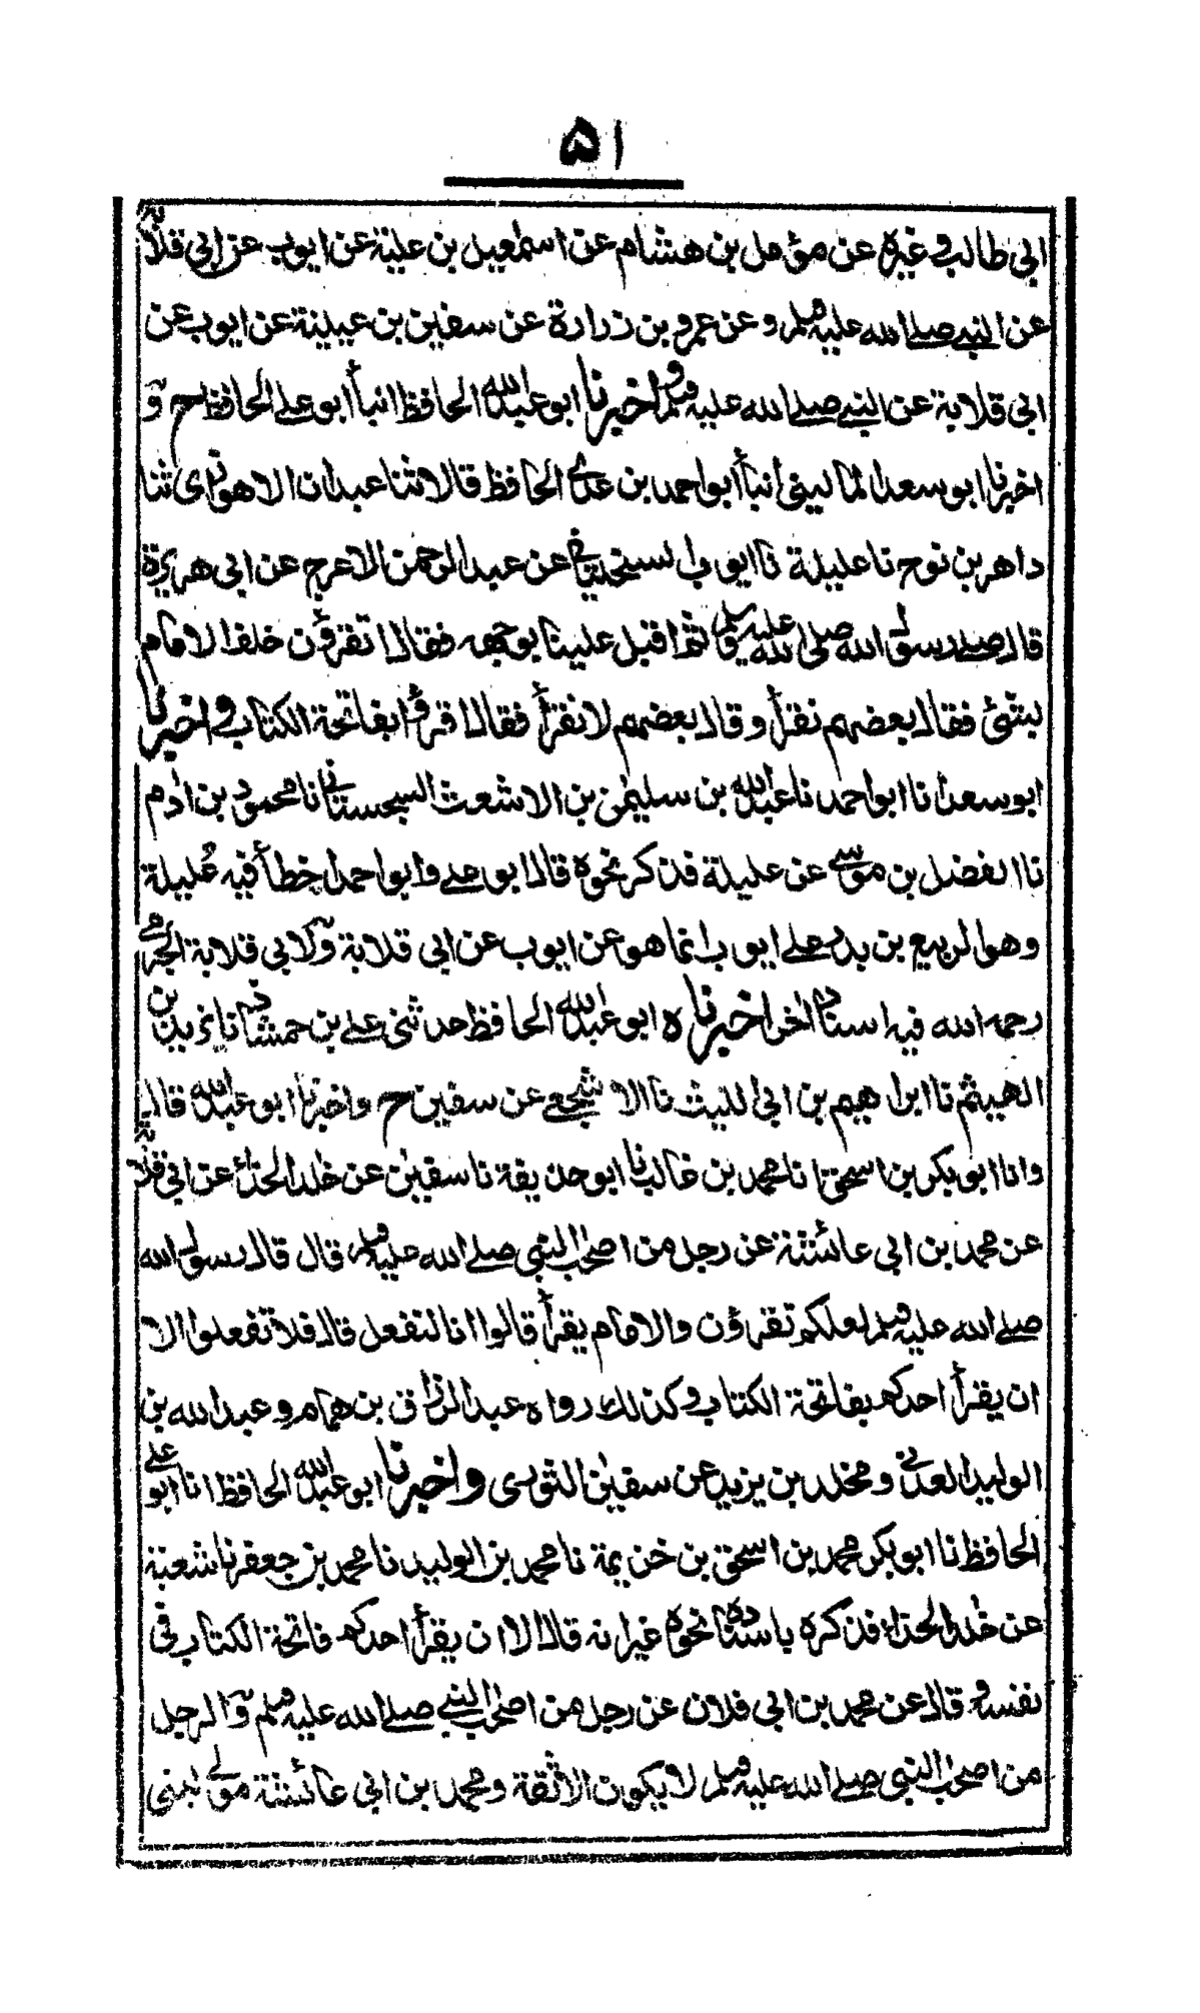 ۵۱
ابی طالب وغیره عن مؤمل بن هشام عن اسمعیل بن علیة عن ایوب عن ابی قلابة
عن النبی صلی الله علیه وسلم وعن عمرو بن زرارة عن سفین بن عیینة عن ایوب عن
ابی قلابة عن النبی صلی الله علیه وسلم واخبرنا ابو عبد الله الحافظ انبأ ابو علی الحافظ ح و
اخبرنا ابو سعد المالینی أنبأ ابو احمد بن عدی الحافظ قالا ثنا عبدان الاهوازی ثنا
داهر بن نوح نا علیلة نا ایوب السختیانی عن عبد الرحمن الاعرج عن ابی هریرة
قال صلی رسول الله صلی الله علیه وسلم ثم اقبل علینا بوجهه فقال اتقرؤن خلف الامام
بشئ فقال بعضهم نقرأ وقال بعضهم لا نقرأ فقال اقرؤا بفاتحة الکتاب واخبرنا
ابو سعد انا ابو احمد نا عبد الله بن سلیمٰن بن الاشعث السجستانی نا محمود بن اٰدم
نا الفضل بن موسی عن علیلة فذکر نحوه قال ابو علی وابو احمد اخطأ فیه عُلیلة
وهو الربیع بن بدر علی ایوب انما هو عن ایوب عن ابی قلابة ولابی قلابة الجرمی
رحمه الله فیه اسناد اٰخر اخبرناه ابو عبد الله الحافظ حدثنی علی بن حمشاذ نا یزید بن
الهیثم نا ابراهیم بن ابی اللیث نا الاشجعی عن سفین ح واخبرنا ابو عبد الله قال
وانا ابو بکر بن اسحق انا محمد بن غالب نا ابو حذیفة نا سفیٰن عن خٰلد الحذاء عن ابی قلابة
عن محمد بن ابی عائشة عن رجل من اصحٰب النبی صلی الله علیه وسلم قال قال رسول الله
صلی الله علیه وسلم لعلکم تقرؤن والامام یقرأ قالوا انا لنفعل قال فلا تفعلوا الا
ان یقرأ احدکم بفاتحة الکتاب وکذلک رواه عبد الرزاق بن همام وعبد الله بن
الولید العدنی ومخلد بن یزید عن سفیٰن الثوری واخبرنا ابو عبد الله الحافظ انا ابو علی
الحافظ نا ابو بکر محمد بن اسحٰق بن خزیمة نا محمد بن الولید نا محمد بن جعفر نا شعبة
عن خٰلد الحذاء فذکره باسناده نحوه غیر انه قال الا ان یقرأ احدکم فاتحة الکتاب فی
نفسه وقال عن محمد بن ابی فلان عن رجل من اصحٰب النبی صلی الله علیه وسلم والرجل
من اصحٰب النبی صلی الله علیه وسلم لا یکون الا ثقة ومحمد بن ابی عائشة مولی لبنی